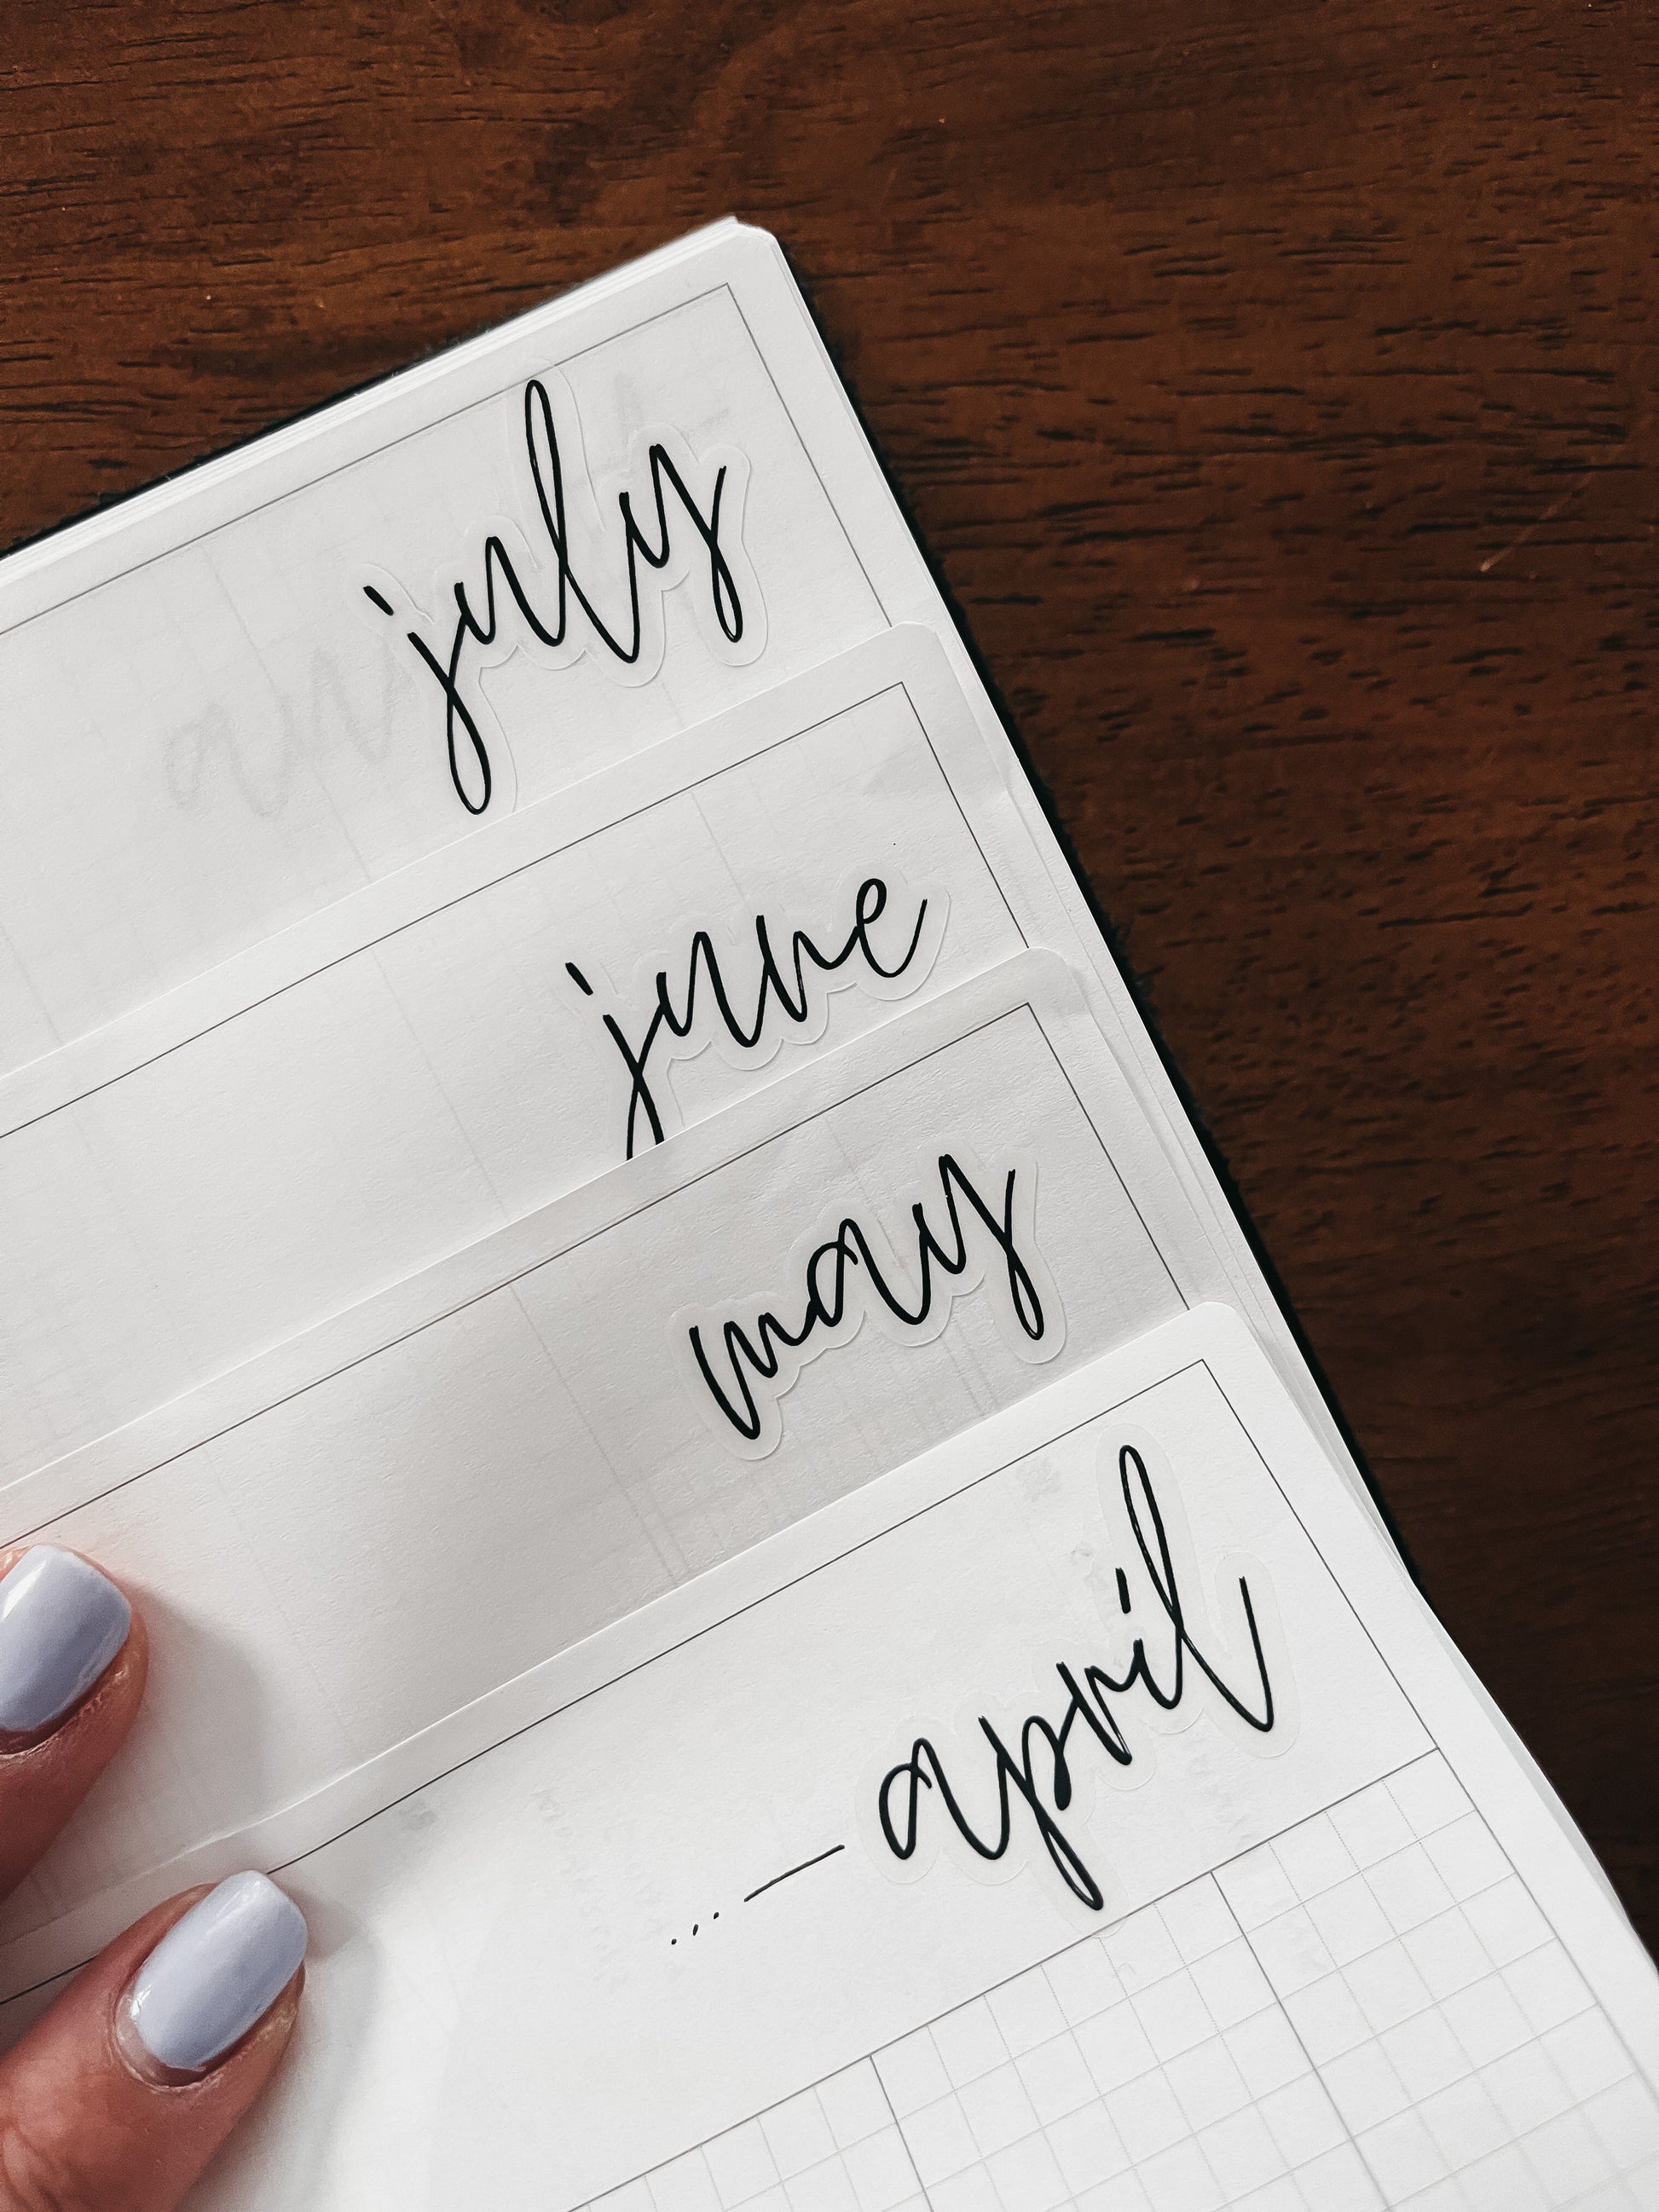 july
june
may
... — april